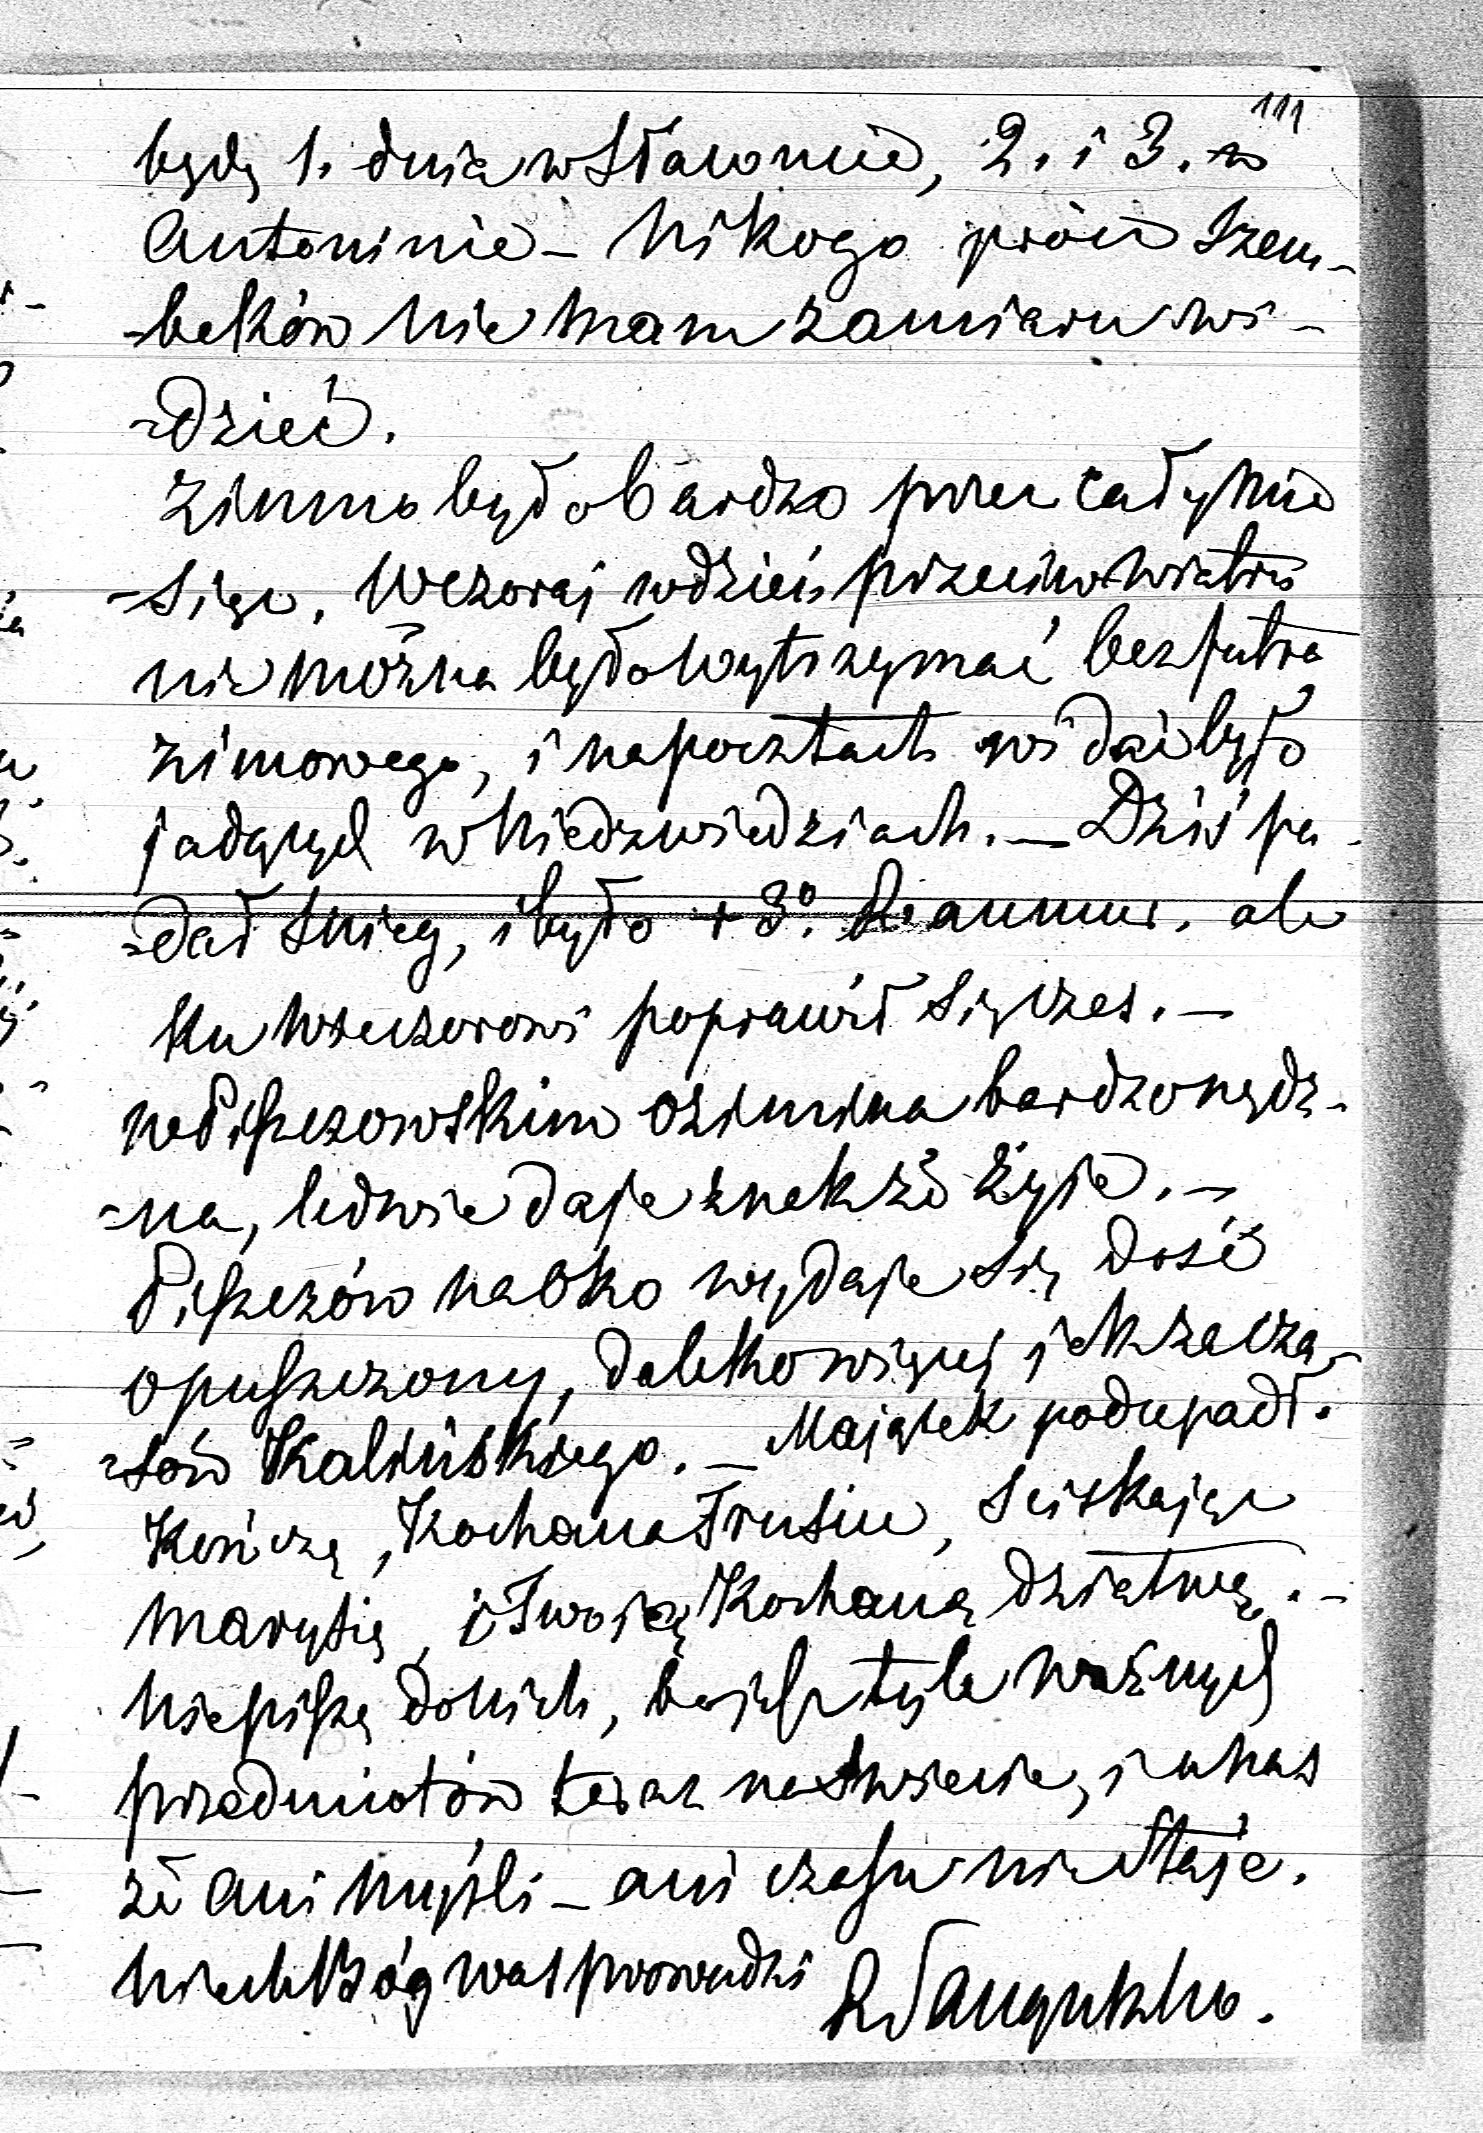 111
będę 1. dnia w Sławucie, 2. i 3. w
Antoninie – Nikogo prócz Szem-
-beków nie mam zamiaru wi-
-dzieć.
Zimno było bardzo przez cały mie
-siąc. Wczoraj w dzień przeciw wiatru
nie można było wytrzymać bez futra
zimowego, i na pocztach widzieć było
jadących w Niedzwiedziach. – Dziś pa-
-dał śnieg, i było + 3°. Reaumur. ale
ku wieczorowi poprawił się czas. –
w Piszczowskim ozimina bardzo nędz-
-na, ledwie daje znak że żyje. –
Piszczów na oko wydaje się dość
opuszczony, daleko więcej jak za cza-
-sów Kalińskiego. – Majątek podupadł.
Kończę, Kochana Frusiu, ściskając
Marysię, i Twoją Kochaną dziatwę. –
nie piszę do nich, bo jest tyle ważnych
przedmiotów teraz na świecie, i u nas
że ani myśli – ani czasu nie staje.
niech Bóg was prowadzi RSanguszko.